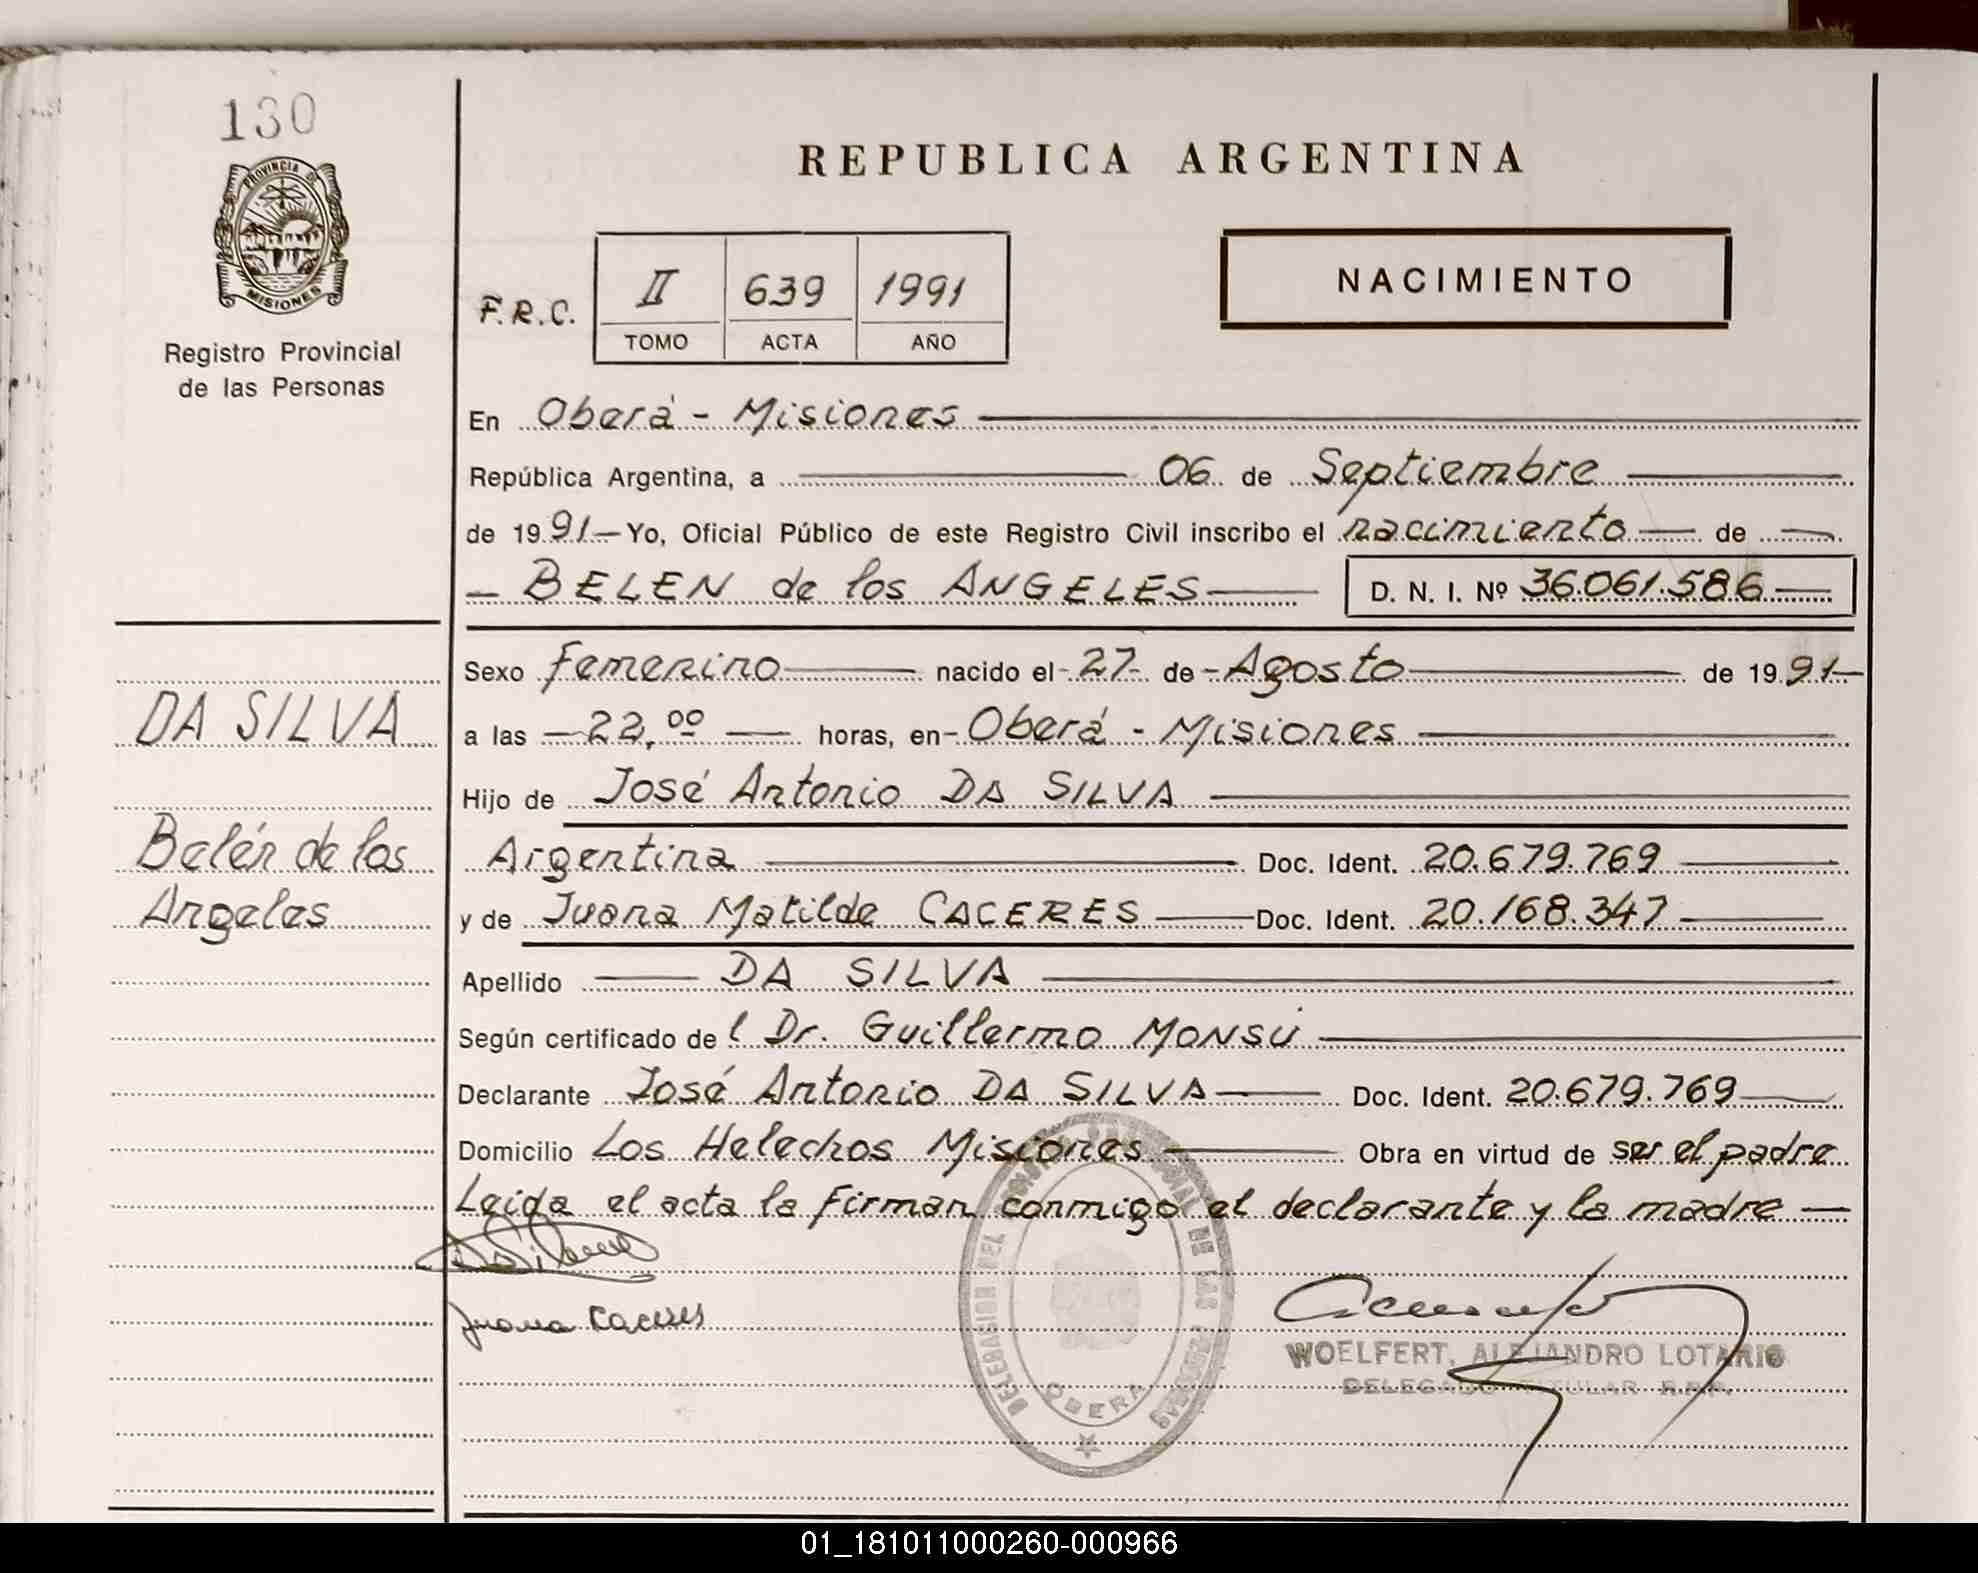 130
PROVINCIA DE
MISIONES
Registro Provincial
de las Personas
REPUBLICA ARGENTINA
F.R.C. II 639 1991
TOMO ACTA AÑO
NACIMIENTO
En Oberá - Misiones
República Argentina, a 06 de Septiembre
de 1991 Yo, Oficial Público de este Registro Civil inscribo el nacimiento de
BELEN de los ANGELES D. N. I. Nº 36.061.586
Sexo Femenino nacido el 27 de Agosto de 1991
DA SILVA
a las 22,00 horas, en Oberá - Misiones
Hijo de José Antonio DA SILVA
Belén de los
Angeles
Argentina Doc. Ident. 20.679.769
y de Juana Matilde CACERES Doc. Ident. 20.168.347
Apellido DA SILVA
Según certificado de l Dr. Guillermo MONSÚ
Declarante José Antonio DA SILVA Doc. Ident. 20.679.769
Domicilio Los Helechos Misiones Obra en virtud de ser el padre
Leída el acta la firman conmigo el declarante y la madre
Da Silva
Juana Caceres
OBERA
WOELFERT, ALEJANDRO LOTARIO
DELEGADO TITULAR R.P.P.
01_181011000260-000966